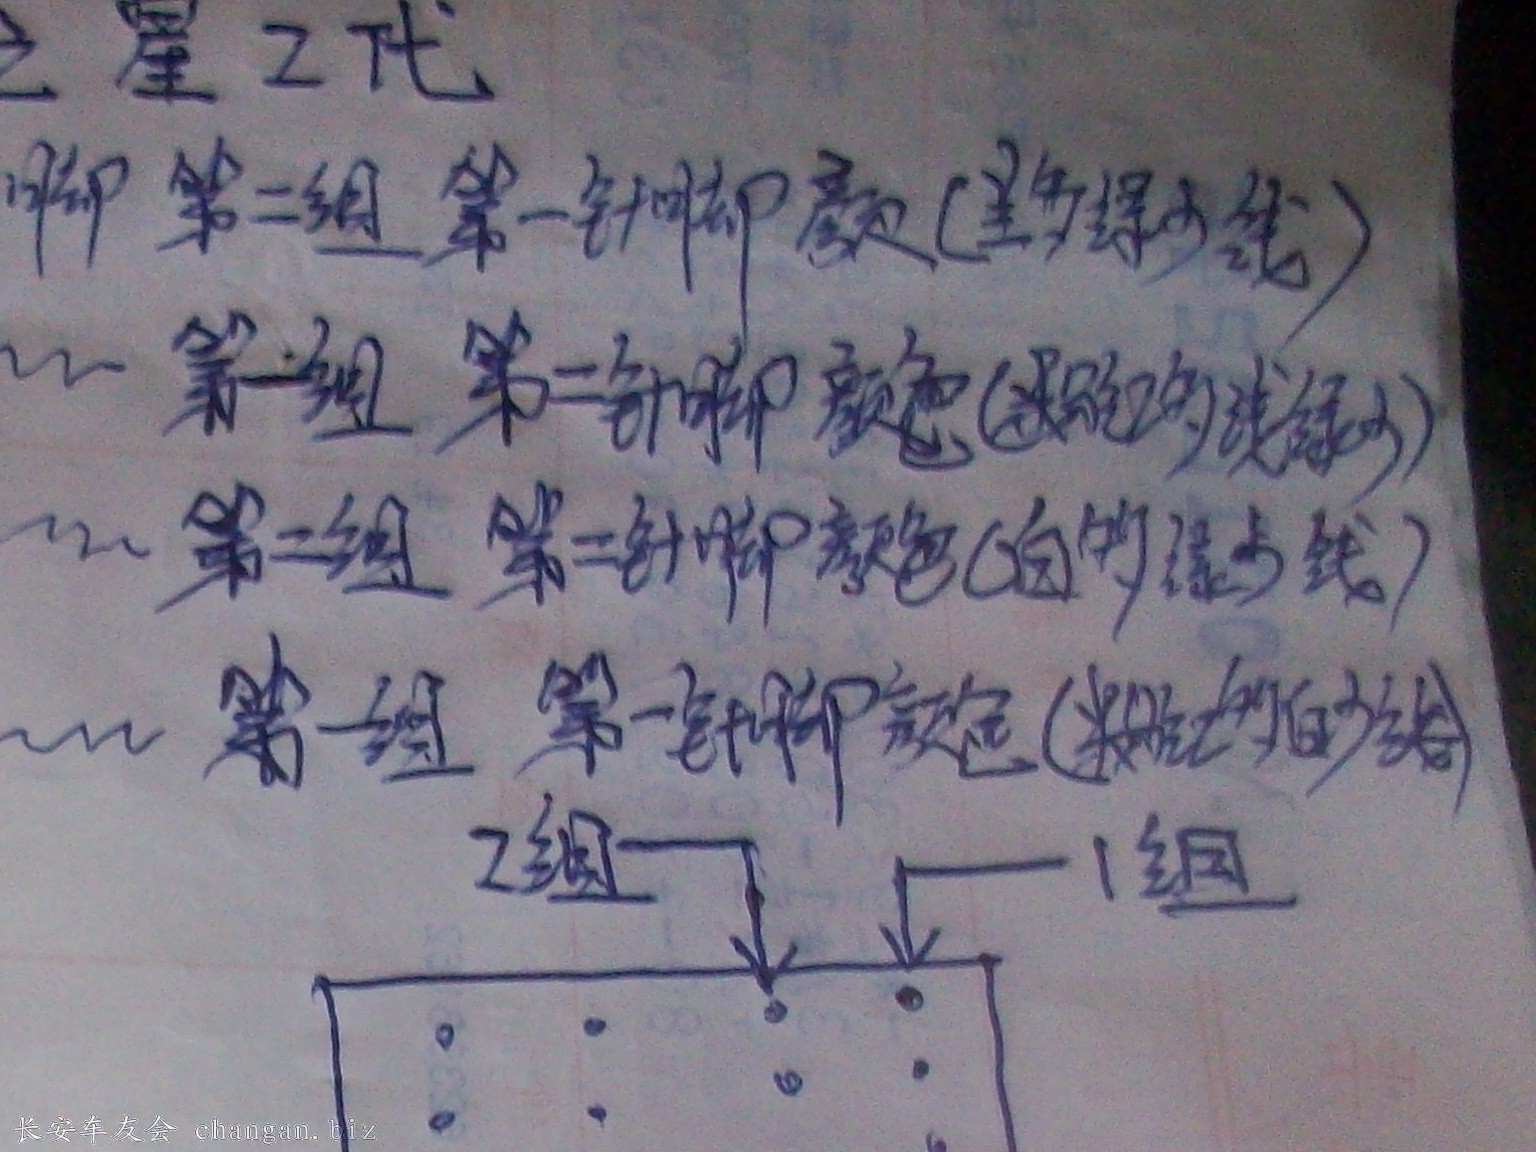 之星2代
脚 第二组 第一针脚 颜(的绿少线)
第一组 第二针脚 颜色(的线绿少)
第二组 第二针脚 颜色(白的绿少线)
第一组 第一针脚 颜色(的白少线)
2组 1组
长安车友会 changan.biz